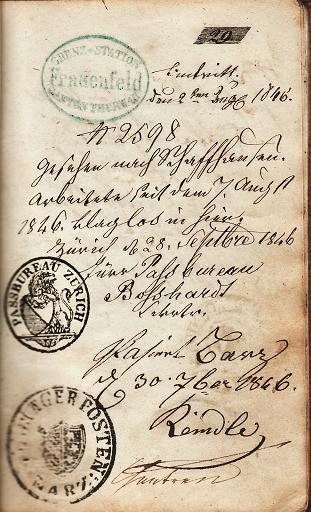 20
GRENZ-STATION
Frauenfeld
KANTON THURGAU
Eintritt.
den 2ten Augt 1846.
N 2598
Gesehen nach Schaffhausen.
Arbeitete seit dem 7 August
1846. klaglos in hier.
Zürich d 28. Septbre 1846
fürs Passbureau
Bosshardt
Sekretr.
PASSBUREAU ZÜRICH
Pasirt
d 30. 7ber 1846.
Reindle
POSTEN